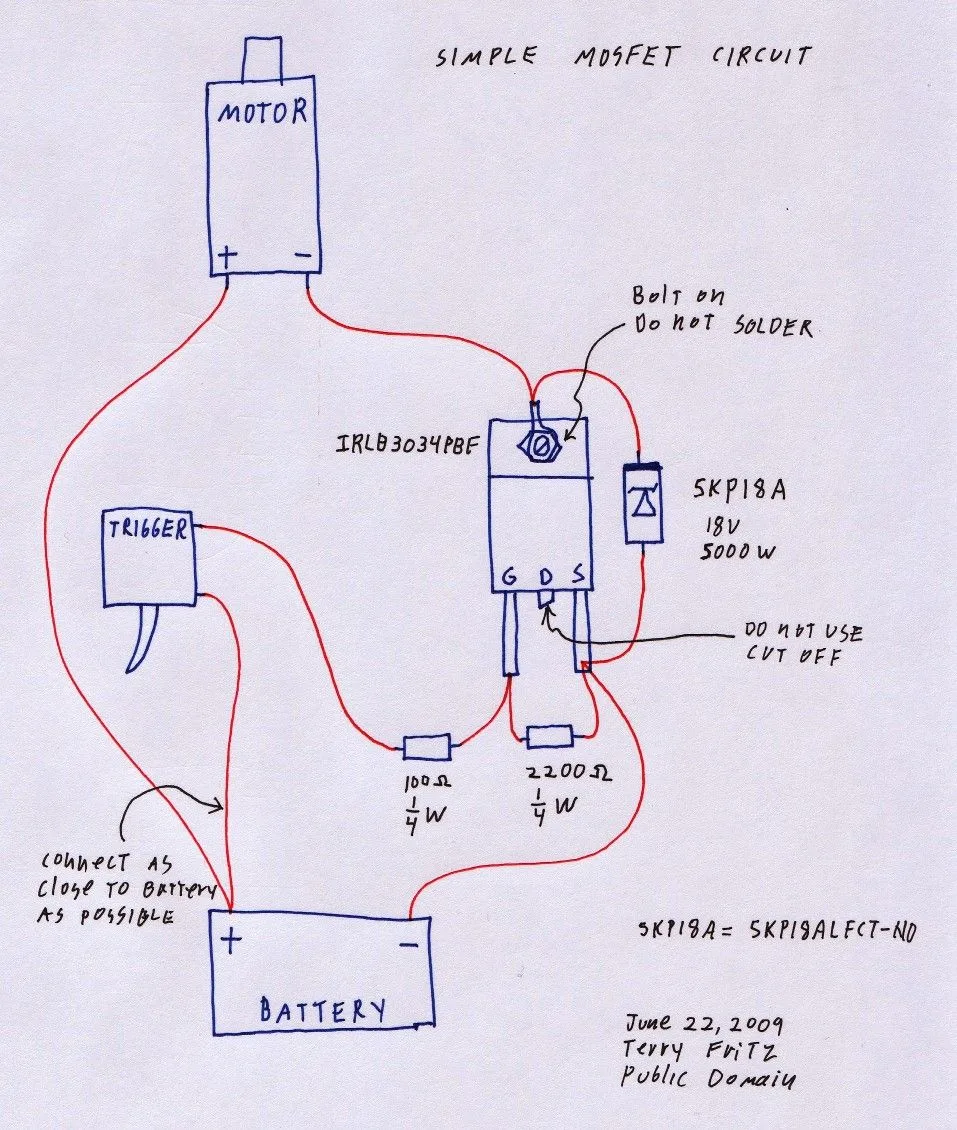 SIMPLE MOSFET CIRCUIT
MOTOR
+ −
Bolt on
Do not SOLDER
IRLB3034PBF
5KP18A
18V
5000W
TRIGGER
G D S
DO NOT USE
CUT OFF
100Ω
1/4 W
2200Ω
1/4 W
connect AS
Close TO BATTery
AS POSSIBLE
+ −
BATTERY
5KP18A = 5KP18ALFCT-ND
June 22, 2009
Terry FriTz
Public Domain